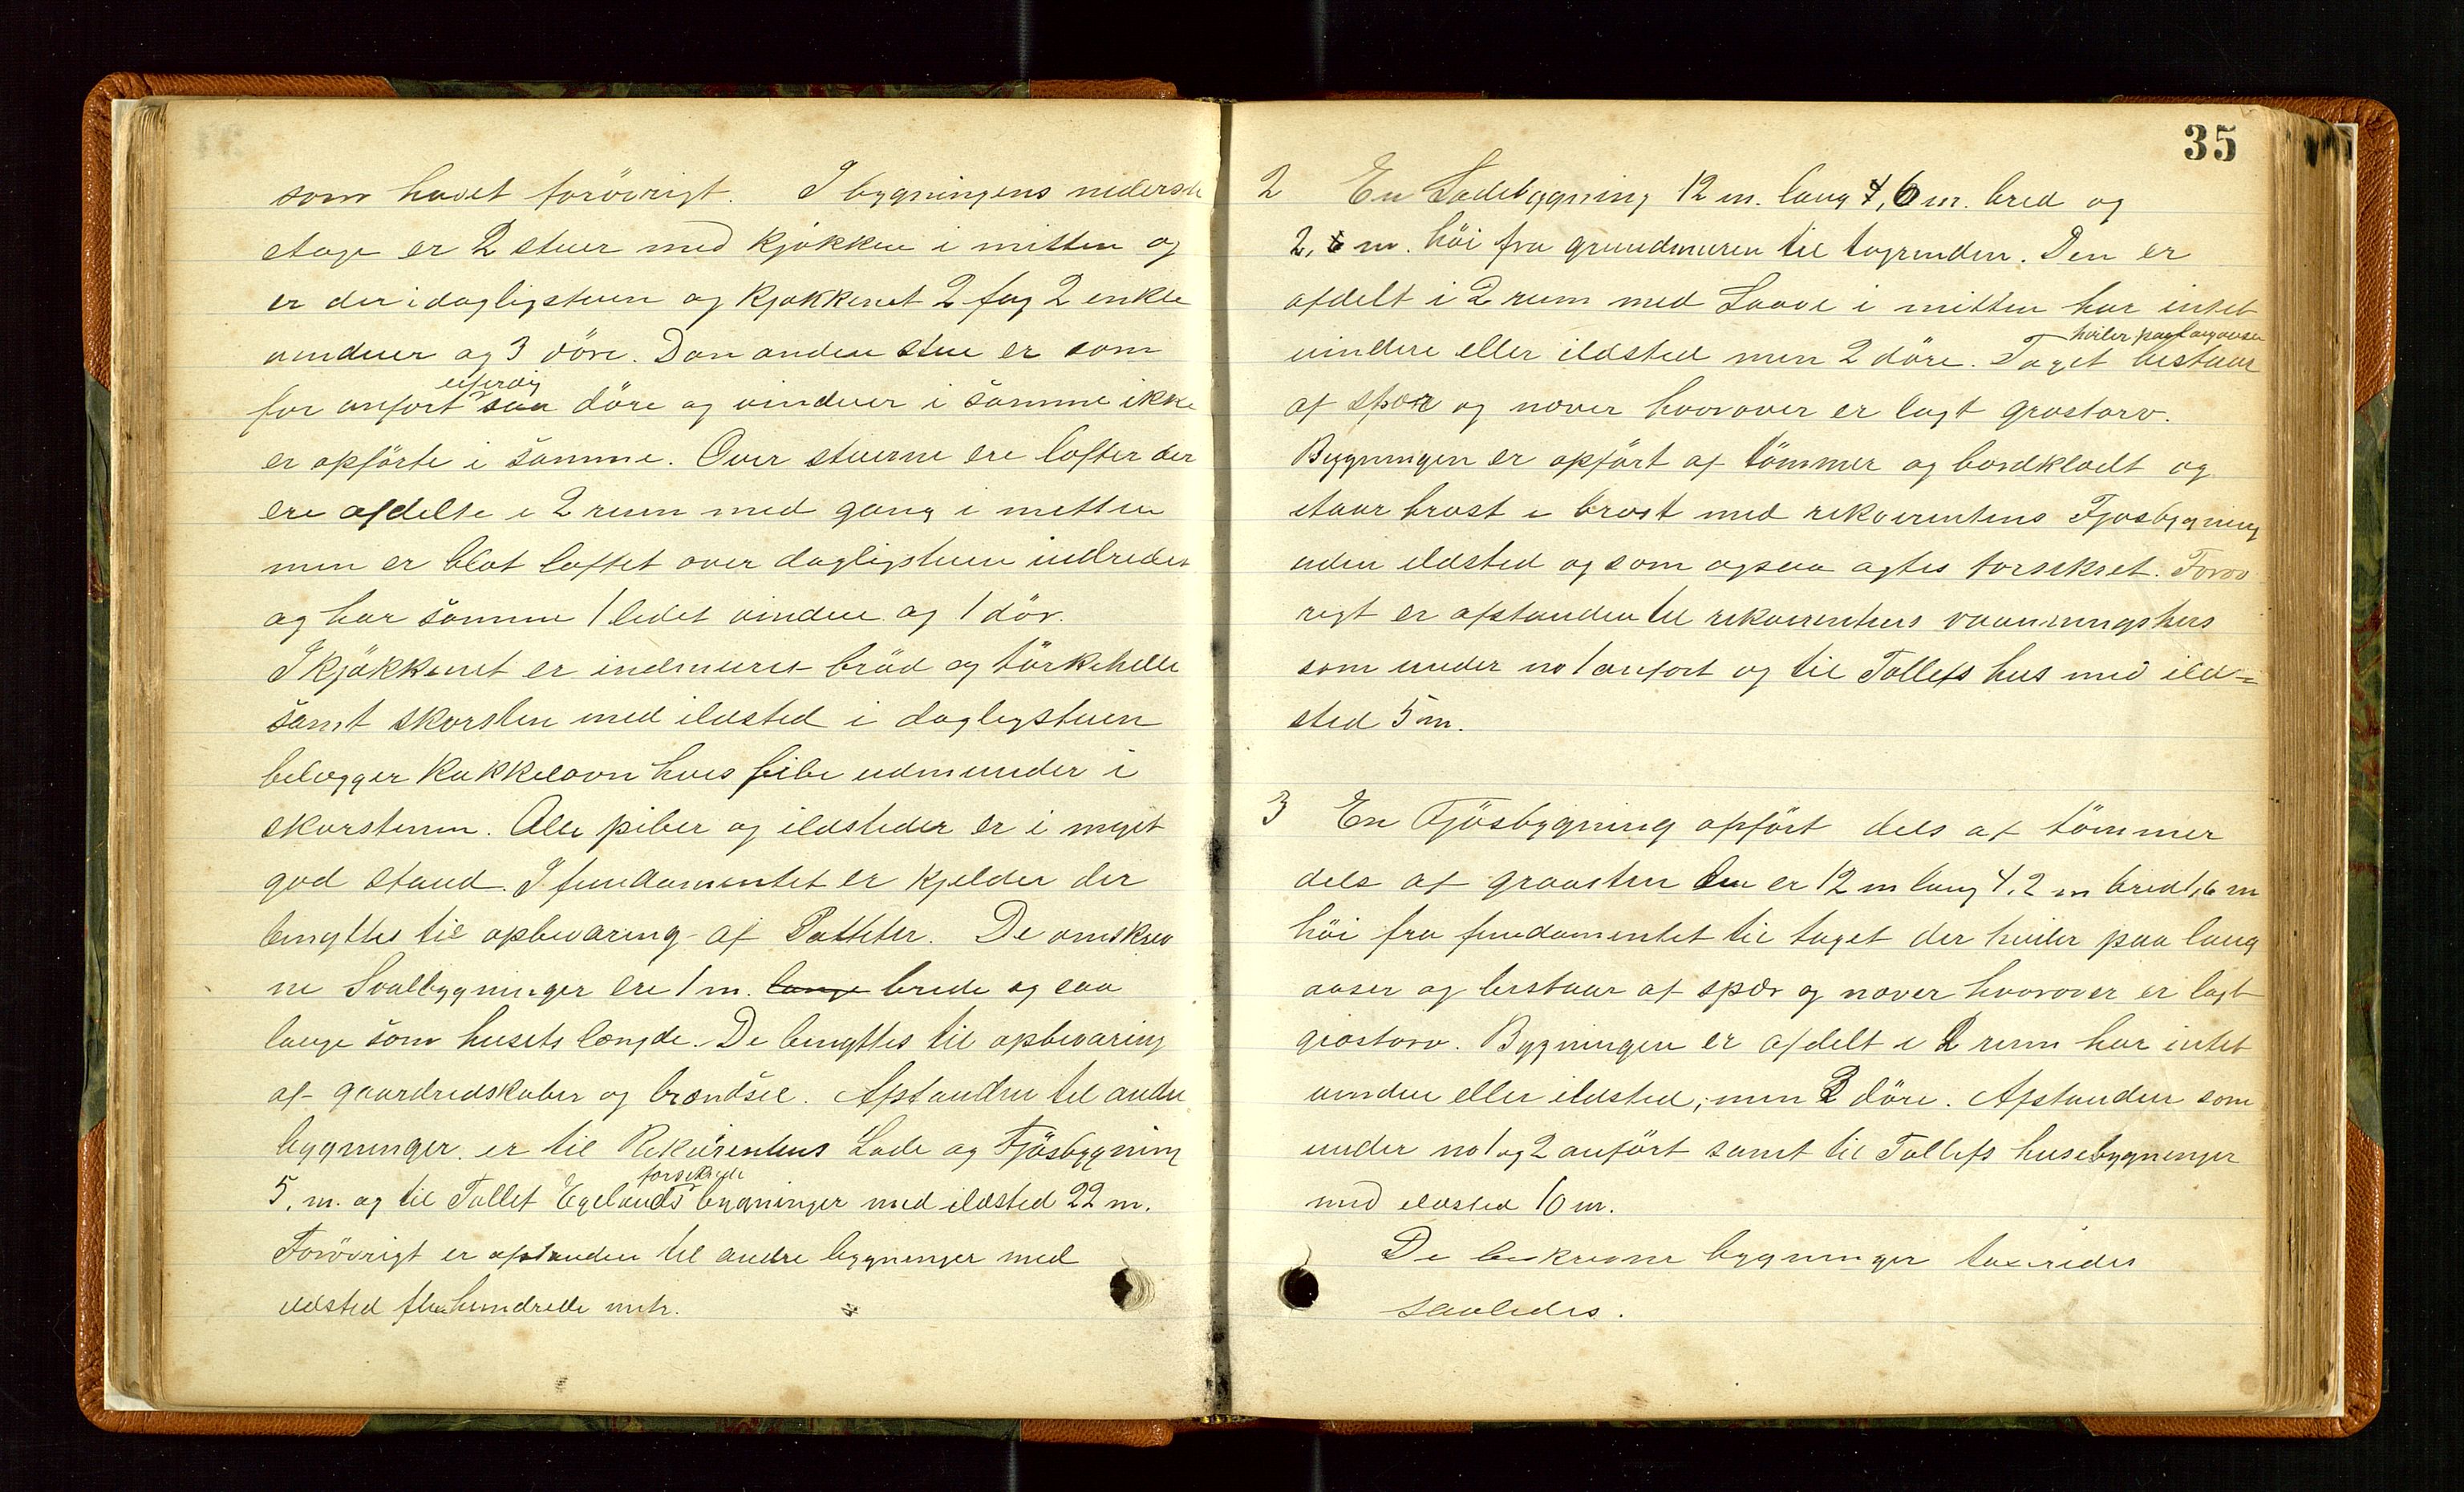 som havet forövrigt. I bygningens nederste
etage er 2 stuer med kjøkken i mitten og
er der i dagligstuen og kjøkkenet 2 fag 2 enkle
vinduer og 3 döre. Den anden stue er som
for anfört uferdig saa döre og vinduer i samme ikke
er opförte i samme. Over stuerne ere lofter der
ere afdelte i 2 rum med gang i mitten
men er blot loftet over dagligstuen indredet
og har samme 1 ledet vindue og 1 dör.
I kjøkkenet er indmuret bröd og törkehelle
samt skorsten med ildsted i dagligstuen
belægger kakkelovn hvis pibe udmunder i
skorstenen. Alle piber og ildsteder er i meget
god stand. I fundamentet er kjelder der
benyttes til opbevaring af Potteter. De omskrev
ne Svalbygninger ere 1 m. lange brede og saa
lange som husets længde. De benyttes til opbevaring
af gaardredskaber og brændsel. Afstanden til andre
bygninger er til Rekvirentens Lade og Fjøsbygning
5. m. og til Tollef Egelands forsikrede bygninger med ildsted 22 m.
Forövrigt er afstanden til andre bygninger med
ildsted flere hundrede mtr.
35
2 En Ladebygning 12 m. lang 4,6 m. bred og
2,6 m. höi fra grundmuren til tagrenden. Den er
afdelt i 2 rum med Laave i mitten har intet
vindue eller ildsted men 2 döre. Taget hviler paa langaaser bestaar
af spær og næver hvorover er lagt græstorv.
Bygningen er opfört af tömmer og bordklædt og
staar brøst i brøst med rekvirentens Fjøsbygning
uden ildsted og som ogsaa agtes forsikret. Forøv
rigt er afstanden til rekvirentens vaaningshus
som under no 1 anført og til Tollefs hus med ild=
sted 5 m.
3 En Fjösbygning opfört dels af tömmer
dels af graasten den er 12 m lang 4,2 m bred 1,6 m
höi fra fundamentet til taget der hviler paa lang
aaser og bestaar af spær og næver hvorover er lagt
græstorv. Bygningen er afdelt i 2 rum har intet
vindue eller ildsted; men 2 döre. Afstanden som
under no 1 og 2 anfört samt til Tollefs husebygninger
med ildsted 10 m.
De beskrevne bygninger taxeredes
saaledes.